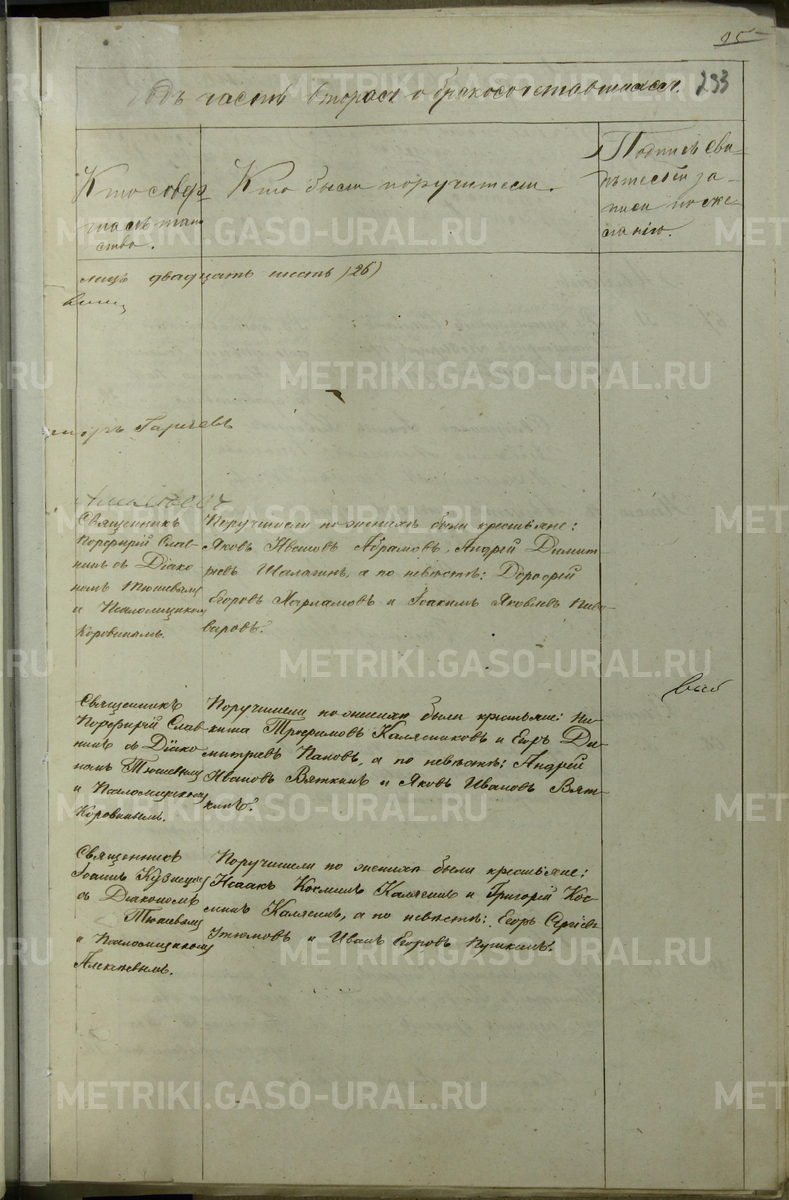 95
годъ часть вторая о бракосочетавшихся. 233
Кто совер-
шалъ таин-
ство.
Кто были поручители.
Подпись сви-
дѣтелей за-
писи по же-
ланію.
лицъ двадцать шесть (26)
Гаричевъ
Священникъ
Порфирій Слав-
нинъ съ Діако-
номъ Тюшевымъ
и Псаломщикомъ
Коровинымъ.
Поручители по женихѣ были крестьяне:
Яковъ Ивановъ Абрамовъ, Андрей Димит-
ріевъ Шалагинъ, а по невѣстѣ: Дорофей
Егоровъ Харламовъ и Іоакимъ Яковлевъ Пиво-
варовъ.
Священникъ
Порфирій Слав-
нинъ съ Діако-
номъ Тюшевымъ
и Псаломщикомъ
Коровинымъ.
Поручители по женихѣ были крестьяне: Ни-
кита Трофимовъ Калясниковъ и Егоръ Ди-
митріевъ Пановъ, а по невѣстѣ: Андрей
Ивановъ Вяткинъ и Яковъ Ивановъ Вят-
кинъ.
Священникъ
Іоаннъ Кузнецовъ
съ Діакономъ
Тюшевымъ
и Псаломщикомъ
Алексѣевымъ.
Поручители по женихѣ были крестьяне:
Исаакъ Косминъ Калягинъ и Григорій Кос-
минъ Калягинъ, а по невѣстѣ: Егоръ Сергіевъ
Утюмовъ и Иванъ Егоровъ Пушкинъ.
METRIKI.GASO-URAL.RU